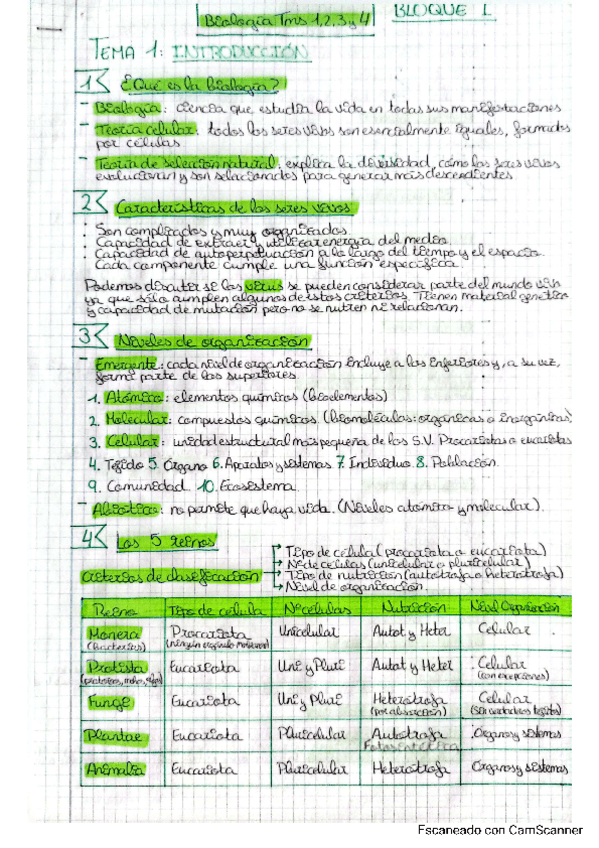 Biología Tms 1,2,3 y 4 BLOQUE I
TEMA 1: INTRODUCCIÓN
1 ¿Qué es la biología?
- Biología: ciencia que estudia la vida en todas sus manifestaciones
- Teoría celular: todos los seres vivos son esencialmente iguales, formados
por células.
- Teoría de selección natural: explica la diversidad, cómo los seres vivos
evolucionan y son seleccionados para generar más descendientes.
2 Características de los seres vivos
· Son complicados y muy organizados.
· Capacidad de extraer y utilizar energía del medio.
· Capacidad de autoperpetuación a lo largo del tiempo y el espacio.
· Cada componente cumple una función específica.
Podemos discutir si los virus se pueden considerar parte del mundo vivo
ya que sólo cumplen algunos de estos criterios. Tienen material genético
y capacidad de mutación pero no se nutren ni relacionan.
3 Niveles de organización
- Emergente: cada nivel de organización incluye a los inferiores y, a su vez,
forma parte de los superiores
1. Atómico: elementos químicos (bioelementos)
2. Molecular: compuestos químicos. (biomoléculas: orgánicas o inorgánicas)
3. Celular: unidad estructural más pequeña de los S.V. Procariotas o eucariotas
4. Tejido 5. Órgano 6. Aparatos y sistemas 7. Individuo 8. Población
9. Comunidad 10. Ecosistema
- Abiótico: no permite que haya vida. (Niveles atómico y molecular).
4 Los 5 reinos
criterios de clasificación
→ Tipo de célula (procariota o eucariota)
→ Nº de células (unicelular o pluricelular)
→ Tipo de nutrición (autótrofa o heterótrofa)
→ Nivel de organización.
Reino Tipo de célula Nº células Nutrición Nivel Organización
Monera Procariota Unicelular Autot y Heter Celular
(bacterias)
Protista Eucariota Uni y Pluri Autot y Heter Celular
(con excepciones)
Fungi Eucariota Uni y Pluri Heterótrofa Celular
(por absorción)
Plantae Eucariota Pluricelular Autótrofa Órganos y sistemas
Fotosintética
Animalia Eucariota Pluricelular Heterótrofa Órganos y sistemas
Escaneado con CamScanner